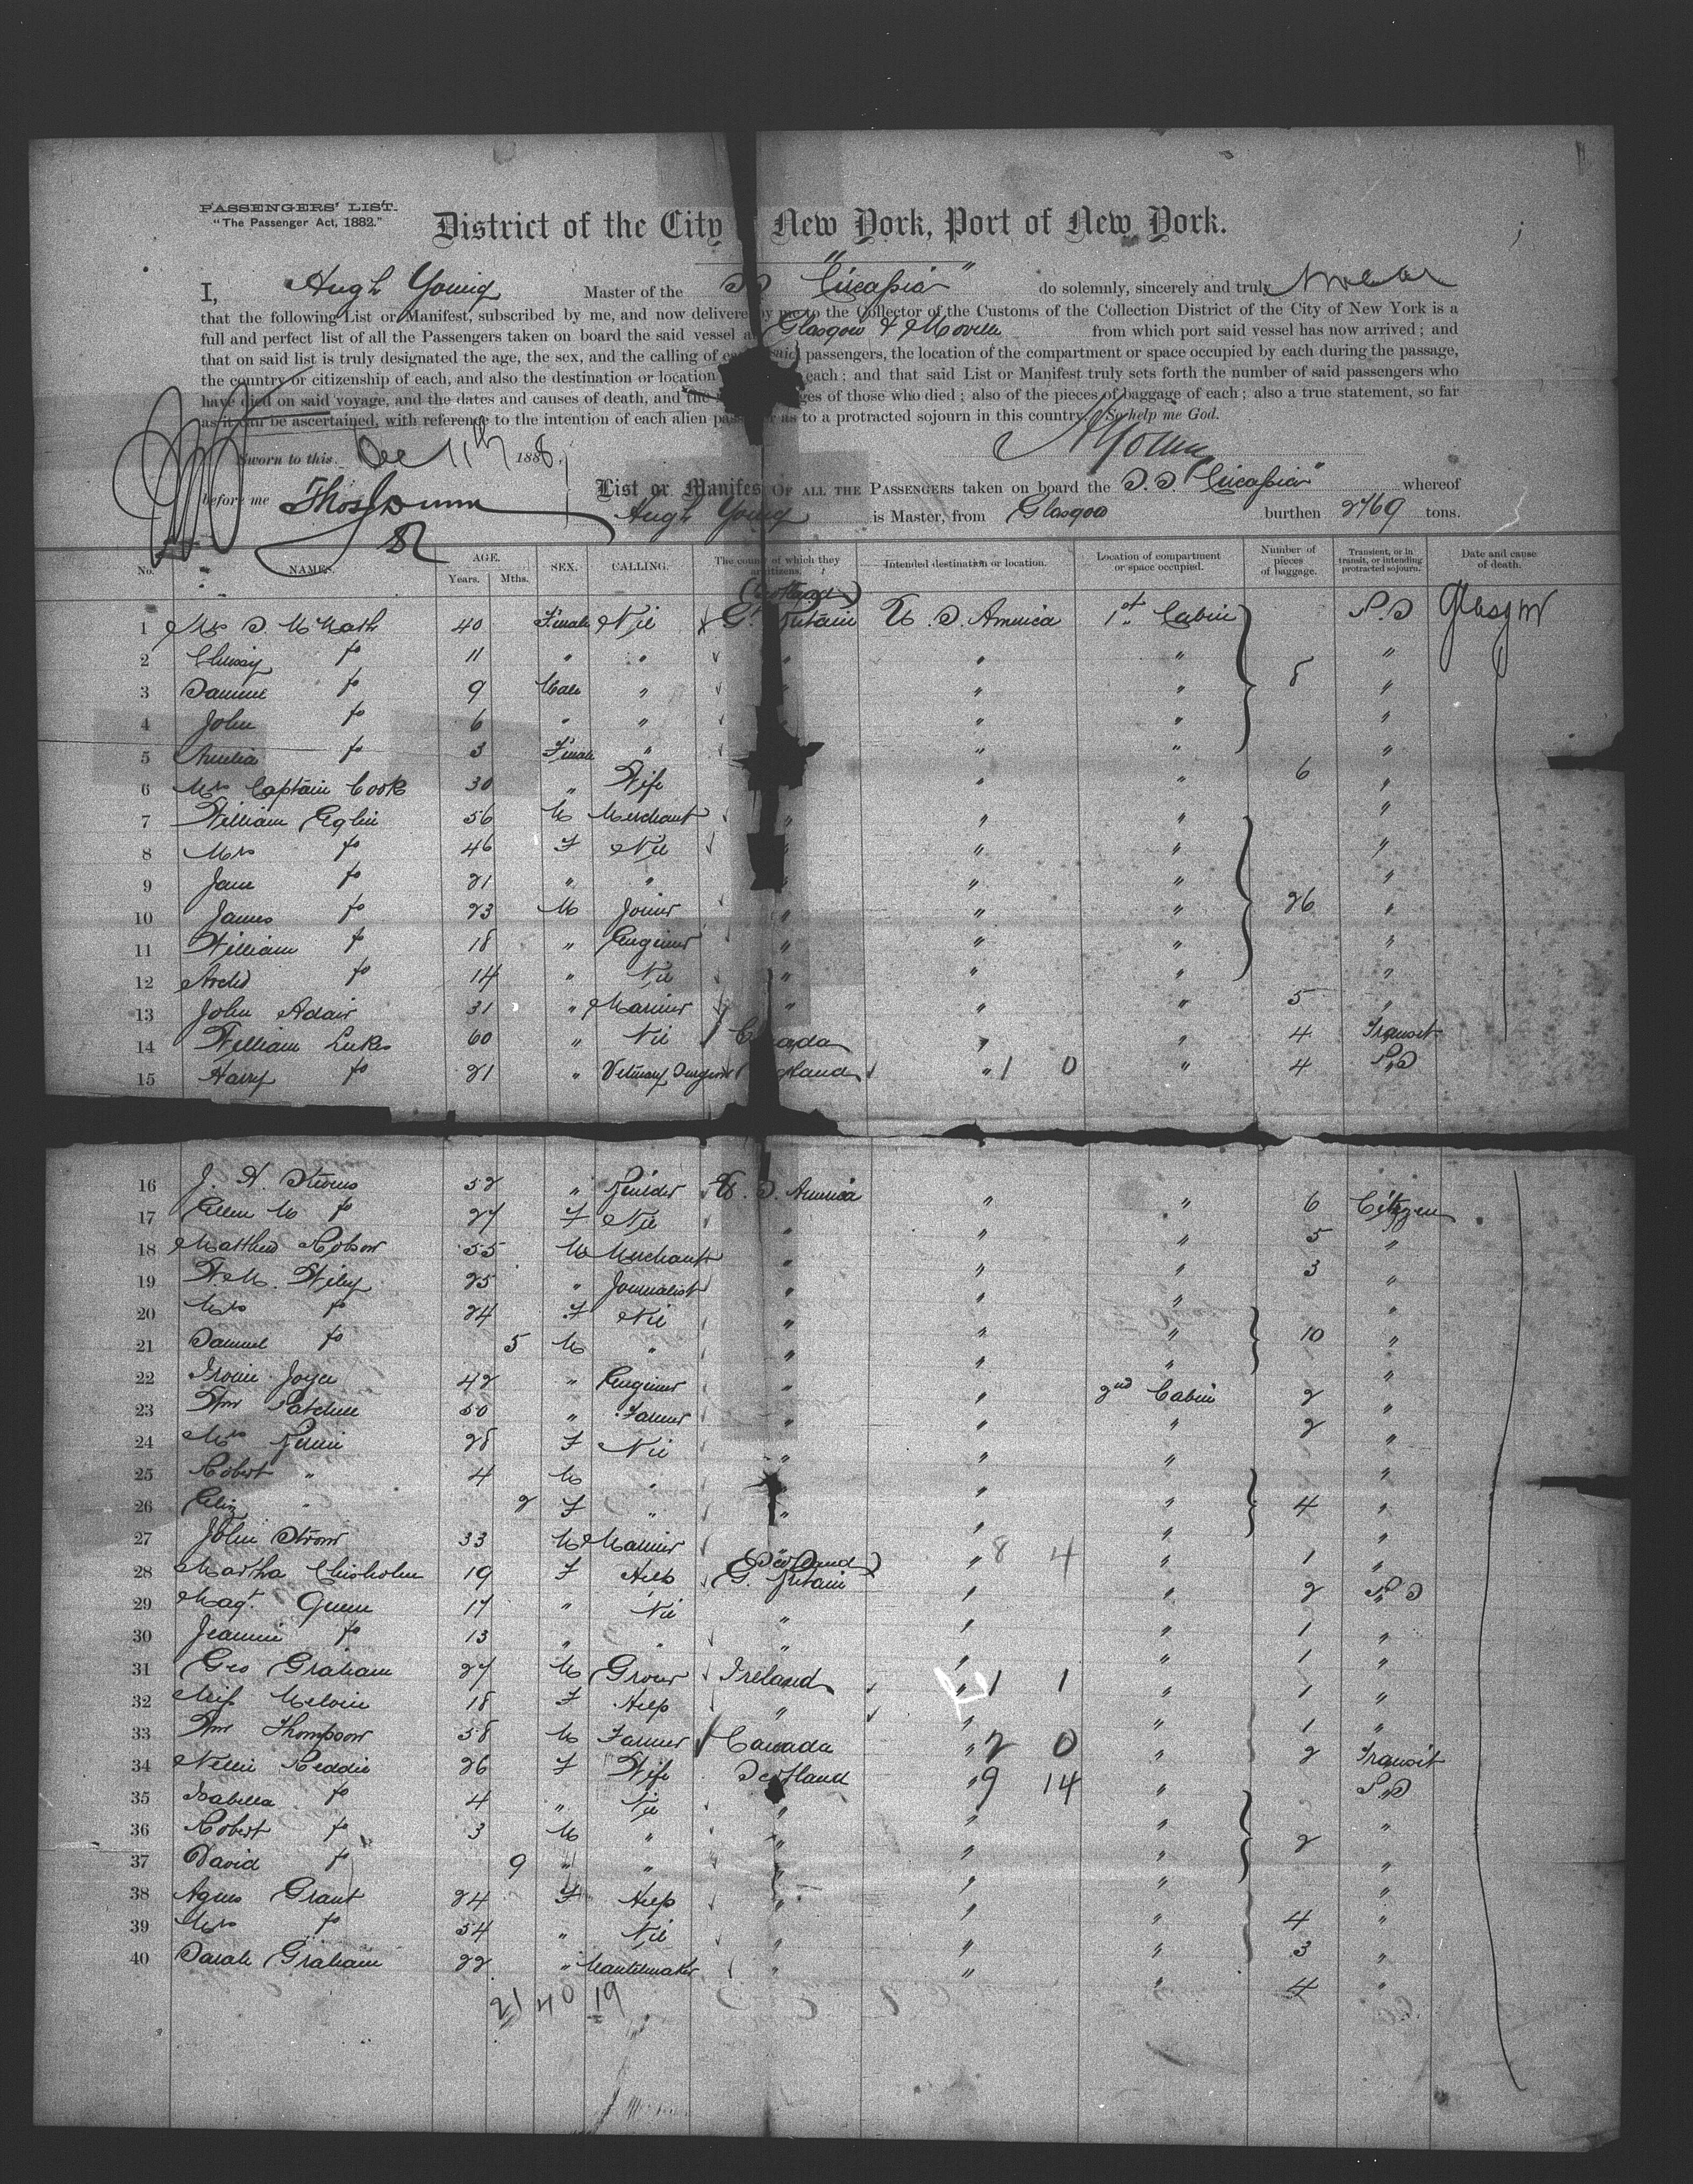 PASSENGERS' LIST.
"The Passenger Act, 1882."
District of the City New York, Port of New York.
I, Hugh Young Master of the SS "Circassia" do solemnly, sincerely and truly swear
that the following List or Manifest, subscribed by me, and now delivered by me to the Collector of the Customs of the Collection District of the City of New York is a
full and perfect list of all the Passengers taken on board the said vessel at Glasgow & Moville from which port said vessel has now arrived; and
that on said list is truly designated the age, the sex, and the calling of each said passengers, the location of the compartment or space occupied by each during the passage,
the country or citizenship of each, and also the destination or location each; and that said List or Manifest truly sets forth the number of said passengers who
have died on said voyage, and the dates and causes of death, and the ges of those who died; also of the pieces of baggage of each; also a true statement, so far
as it can be ascertained, with reference to the intention of each alien passenger as to a protracted sojourn in this country. So help me God.
HYoung
Sworn to this Dec 11th 188
before me Thos
List or Manifest OF ALL THE PASSENGERS taken on board the S.S. "Circassia" whereof
Hugh Young is Master, from Glasgow burthen 2769 tons.
No. NAMES. AGE. Years. Mths. SEX. CALLING. The country of which they are citizens. Intended destination or location. Location of compartment or space occupied. Number of pieces of baggage. Transient, or in transit, or intending protracted sojourn. Date and cause of death.
(Scotland)
1 Mrs S. McMath 40 Female Nil Gt Britain U. S. America 1st Cabin P.S Glasgow
2 Chrissy do 11 " " " " " "
3 Samuel do 9 Male " " " " 8 "
4 John do 6 " " " " " "
5 Amelia do 3 Female " " " "
6 Mrs Captain Cook 30 " Wife " " 6 "
7 William Eglin 56 M Merchant " " " "
8 Mrs do 46 F Nil " " " "
9 Jane do 21 " " " " " "
10 James do 23 M Joiner " " " 26 "
11 William do 18 " Engineer " " " "
12 Archd do 14 " Nil " " " "
13 John Adair 31 " Mariner " " " 5 "
14 William Lukes 60 " Nil Canada " " 4 Transit
15 Harry do 21 " Veterinary Surgeon " 1 0 " 4 P.S
16 J. H. Stevens 52 " Builder U. S. America " " 6 Citizen
17 Ellen M do 27 F Nil " " " 5 "
18 Matthew Robson 55 M Merchant " " " 3 "
19 W M. Wiley 25 " Journalist " " " "
20 Mrs do 24 F Nil " " " 10 "
21 Samuel do 5 M " " " " "
22 Joyce 42 " Engineer " " 2nd Cabin 2 "
23 Wm Patchell 50 " Farmer " " " 2 "
24 Mrs 28 F Nil " " " "
25 Robert " 4 M " " " " "
26 Eliz " 2 F " " " " 4 "
27 John Strom 33 M Mariner " 8 4 " 1 "
(Scotland)
28 Martha Chisholm 19 F Help G. Britain " " 2 P.S
29 Magt. Queen 17 " Nil " " " 1 "
30 Jeannie do 13 " " " " " 1 "
31 Geo Graham 27 M Grocer Ireland " 1 1 " 1 "
32 Miss Melvin 18 F Help " " " 1 "
33 Wm Thompson 58 M Farmer Canada " 2 0 " 2 Transit
34 Nellie Reddie 26 F Wife Scotland " 9 14 " P.S
35 Isabella do 4 " Nil " " " "
36 Robert do 3 M " " " " 2 "
37 David do 9 " " " " " "
38 Agnes Grant 24 F Help " " " 4 "
39 Mrs do 54 " Nil " " " 3 "
40 Sarah Graham 22 " Mantlemaker " " " 4 "
21 40 19